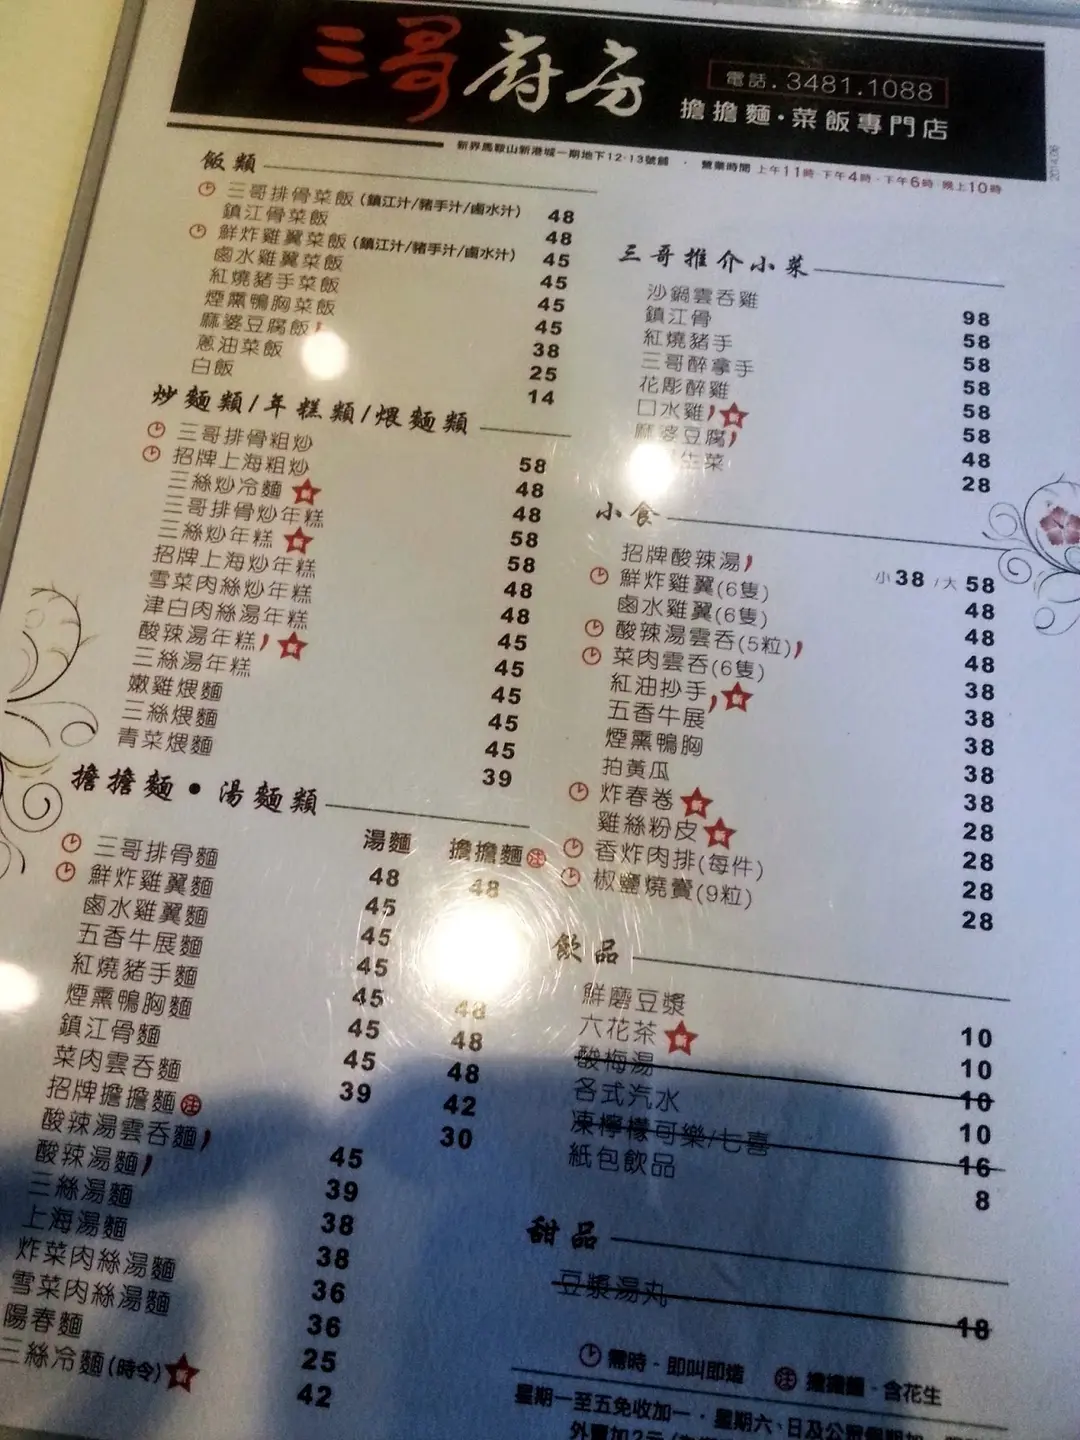 三哥廚房
電話．3481.1088
擔擔麵・菜飯專門店
新界馬鞍山新港城一期地下12-13號舖 ・ 營業時間 上午11時-下午4時・下午6時-晚上10時
2014.06
飯類
三哥排骨菜飯(鎮江汁/豬手汁/鹵水汁) 48
鎮江骨菜飯 48
鮮炸雞翼菜飯(鎮江汁/豬手汁/鹵水汁) 45
鹵水雞翼菜飯 45
紅燒豬手菜飯 45
煙熏鴨胸菜飯 45
麻婆豆腐飯 38
蔥油菜飯 25
白飯 14
炒麵類/年糕類/煨麵類
三哥排骨粗炒 58
招牌上海粗炒 48
三絲炒冷麵 新 48
三哥排骨炒年糕 58
三絲炒年糕 新 58
招牌上海炒年糕 48
雪菜肉絲炒年糕 48
津白肉絲湯年糕 45
酸辣湯年糕 新 45
三絲湯年糕 45
嫩雞煨麵 45
三絲煨麵 45
青菜煨麵 39
擔擔麵・湯麵類
湯麵 擔擔麵 註
三哥排骨麵 48 48
鮮炸雞翼麵 45
鹵水雞翼麵 45
五香牛展麵 45
紅燒豬手麵 45 48
煙熏鴨胸麵 45 48
鎮江骨麵 45 48
菜肉雲吞麵 39 42
招牌擔擔麵 註 30
酸辣湯雲吞麵 45
酸辣湯麵 39
三絲湯麵 38
上海湯麵 38
炸菜肉絲湯麵 36
雪菜肉絲湯麵 36
陽春麵 25
三絲冷麵(時令) 新 42
三哥推介小菜
沙鍋雲吞雞 98
鎮江骨 58
紅燒豬手 58
三哥醉拿手 58
花彫醉雞 58
口水雞 新 58
麻婆豆腐 48
生菜 28
小食
招牌酸辣湯 小38 /大 58
鮮炸雞翼(6隻) 48
鹵水雞翼(6隻) 48
酸辣湯雲吞(5粒) 48
菜肉雲吞(6隻) 38
紅油抄手 新 38
五香牛展 38
煙熏鴨胸 38
拍黃瓜 38
炸春卷 新 28
雞絲粉皮 新 28
香炸肉排(每件) 28
椒鹽燒賣(9粒) 28
飲品
鮮磨豆漿 10
六花茶 新 10
酸梅湯 10
各式汽水 10
凍檸檬可樂/七喜 16
紙包飲品 8
甜品
豆漿湯丸 18
需時-即叫即造 註 擔擔麵-含花生
星期一至五免收加一・星期六、日及公眾假期加
外賣加2元